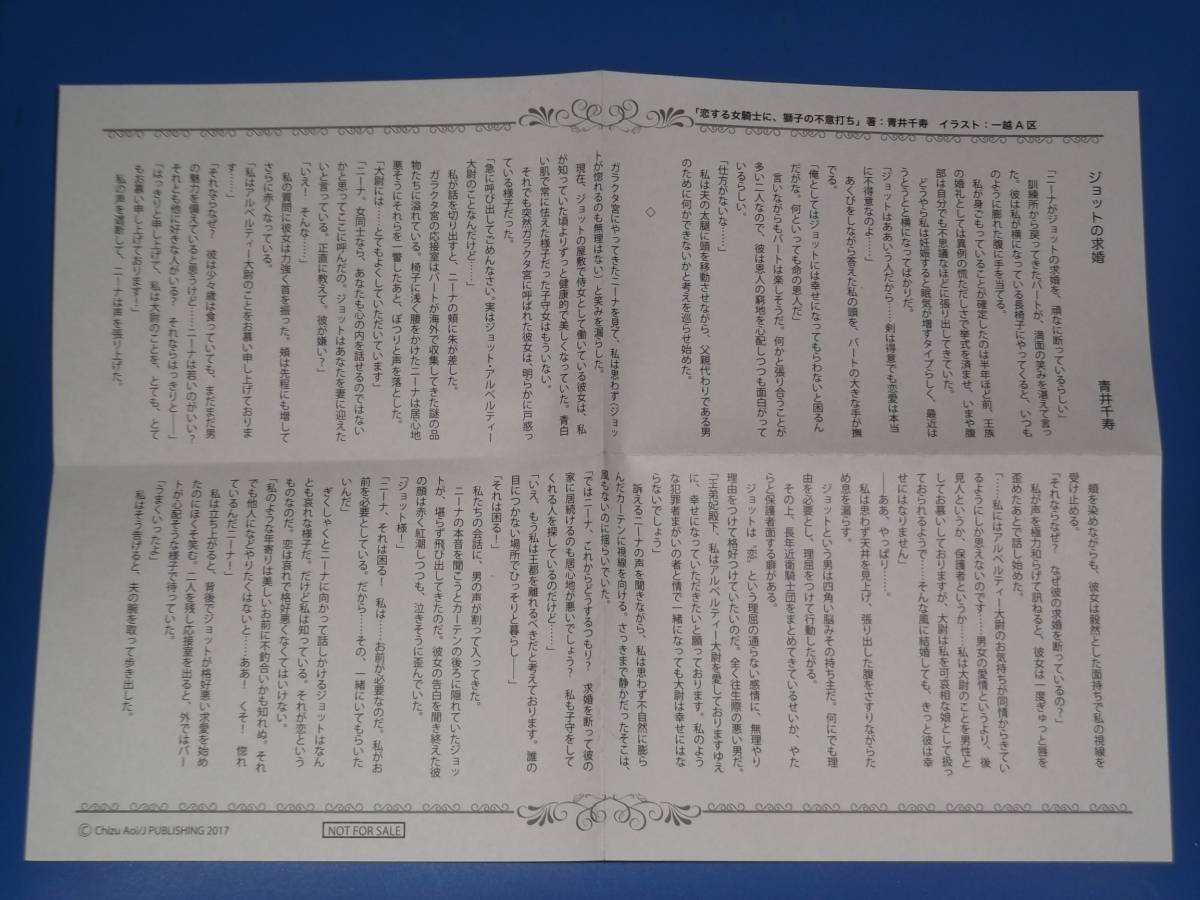 「恋する女騎士に、獅子の不意打ち」著：青井千寿　イラスト：一越A区
ジョットの求婚
青井千寿
「ニーナがジョットの求婚を、頑なに断っているらしい」
訓練所から戻ってきたバートが、満面の笑みを湛えて言っ
た。彼は私が横になっている長椅子にやってくると、いつも
のように膨れた腹に手を当てる。
私が身ごもっていることが確定したのは半年ほど前、王族
の婚礼としては異例の慌ただしさで挙式を済ませ、いまや腹
部は自分でも不思議なほどに張り出してきていた。
どうやら私は妊娠すると眠気が増すタイプらしく、最近は
うとうとと横になってばかりだ。
「ジョットはああいう人だから……剣は得意でも恋愛は本当
に不得意なのよ……」
あくびをしながら答えた私の頭を、バートの大きな手が撫
でる。
「俺としてはジョットには幸せになってもらわないと困るん
だがな。何といっても命の恩人だ」
言いながらもバートは楽しそうだ。何かと張り合うことが
多い二人なので、彼は恩人の窮地を心配しつつも面白がって
いるらしい。
「仕方がないな……」
私は夫の太腿に頭を移動させながら、父親代わりである男
のために何かできないかと考えを巡らせ始めた。
◇
ガラクタ宮にやってきたニーナを見て、私は思わず〈ジョッ
トが惚れるのも無理はない〉と笑みを漏らした。
現在、ジョットの屋敷で侍女として働いている彼女は、私
が知っていた頃よりずっと健康的で美しくなっていた。青白
い肌で常に怯えた様子だった子守女はもういない。
それでも突然ガラクタ宮に呼ばれた彼女は明らかに戸惑っ
ている様子だった。
「急に呼び出してごめんなさい。実はジョット・アルベルティー
大尉のことなんだけど……」
私が話を切り出すと、ニーナの頬に朱が差した。
ガラクタ宮の応接室はバートが海外で収集してきた謎の品
物たちに溢れている。椅子に浅く腰をかけたニーナは居心地
悪そうにそれらを一瞥したあと、ぽつりと声を落とした。
「大尉には……とてもよくしていただいています」
「ニーナ。女同士なら、あなたも心の内を話せるのではない
かと思ってここに呼んだの。ジョットはあなたを妻に迎えた
いと言っている。正直に教えて。彼が嫌い？」
「いえ！　そんな……」
私の質問に彼女は力強く首を振った。頬は先程にも増して
さらに赤くなっている。
「私はアルベルティー大尉のことをお慕い申し上げておりま
す……」
「それならなぜ？　彼は少々歳は食っていても、まだまだ男
の魅力を備えていると思うけど……ニーナは若いのがいい？
それとも他に好きな人がいる？　それならはっきりと――」
「はっきりと申し上げて、私は大尉のことを、とても、とて
もお慕い申し上げております！」
私の声を遮断して、ニーナは声を張り上げた。
頬を染めながらも、彼女は毅然とした面持ちで私の視線を
受け止める。
「それならなぜ？　なぜ彼の求婚を断っているの？」
私が声を極力和らげて訊ねると、彼女は一度ぎゅっと唇を
歪めたあとで話し始めた。
「……私にはアルベルティー大尉のお気持ちが同情からきてい
るようにしか思えないのです……男女の愛情というより、後
見人というか、保護者というか……私は大尉のことを男性と
してお慕いしておりますが、大尉は私を可哀相な娘として扱っ
ておられるようで……そんな風に結婚しても、きっと彼は幸
せにはなりません」
――ああ、やっぱり……。
私は思わず天井を見上げ、張り出した腹をさすりながらた
め息を漏らす。
ジョットという男は四角い脳みその持ち主だ。何にでも理
由を必要とし、理屈をつけて行動したがる。
その上、長年近衛騎士団をまとめてきているせいか、やた
らと保護者面する癖がある。
ジョットは〝恋〟という理屈の通らない感情に、無理やり
理由をつけて格好つけていたいのだ。全く往生際の悪い男だ。
「王弟妃殿下、私はアルベルティー大尉を愛しておりますゆえ
に、幸せになっていただきたいと願っております。私のよう
な犯罪者まがいの者と情で一緒になっても大尉は幸せにはな
らないでしょう」
訴えるニーナの声を聞きながら、私は思わず不自然に膨ら
んだカーテンに視線を向ける。さっきまで静かだったそこは、
風もないのに揺らいでいた。
「では、ニーナ、これからどうするつもり？　求婚を断って彼の
家に居続けるのも居心地が悪いでしょう？　私も子守をして
くれる人を探しているのだけど……」
「いえ、もう私は王都を離れるべきだと考えております。誰の
目にもつかない場所でひっそりと暮らし――」
「それは困る！」
私たちの会話に、男の声が割って入ってきた。
ニーナの本音を聞こうとカーテンの後ろに隠れていたジョッ
トが、堪らず飛び出してきたのだ。彼女の告白を聞き終えた彼
の顔は赤く紅潮しつつも、泣きそうに歪んでいた。
「ジョット様！」
「ニーナ、それは困る！　私は……お前が必要なのだ。私がお
前を必要としている。だから……その、一緒にいてもらいた
いんだ」
ぎくしゃくとニーナに向かって話しかけるジョットはなん
とも哀れな様子だ。だけど私は知っている。それが恋という
ものなのだ。恋は哀れで格好悪くなくてはいけない。
「私のような年寄りは美しいお前に不釣合いかも知れぬ。それ
でも他人になどやりたくはないと……ああ！　くそ！　惚れ
ているんだニーナ！」
私は立ち上がると、背後でジョットが格好悪い求愛を始め
たのにほくそ笑む。二人を残し応接室を出ると、外ではバー
トが心配そうな様子で待っていた。
「うまくいったよ」
私はそう告げると、夫の腕を取って歩き出した。
Ⓒ Chizu Aoi/J PUBLISHING 2017
NOT FOR SALE